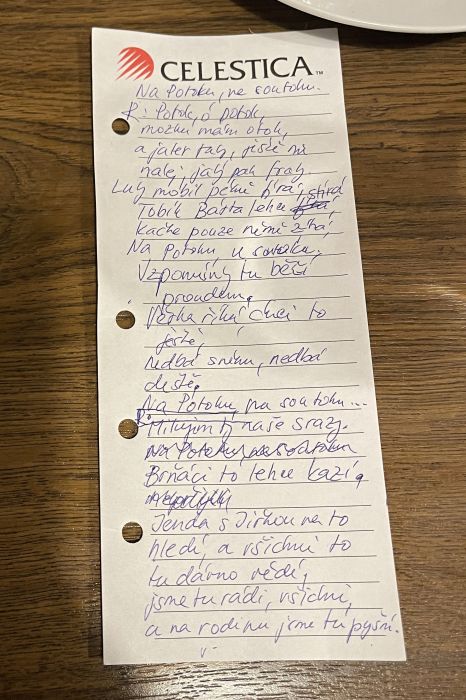 CELESTICA™
Na Potoku, ne soutoku.
R: Potok, ó potok,
možná mám otok,
a jater tah, ještě mi
nalej, jaký pak frah.
Luky mobil pěkně svírá,
Tobík Bárta lehce zírá
Kačka pouze němě zírá
Na Potoku, u soutoku,
Vzpomínky tu běží
proudem.
Verka říká chci to
ještě,
nedbá sněhu, nedbá
deště.
Na Potoku, na soutoku...
R:
Miluji ty naše srazy.
Na Potoku, na soutoku
Brňáci to lehce kazí,
Jenda s Jirkou na to
hledí, a všichni to
tu dávno vědí,
jsme tu rádi, všichni,
a na rodinu jsme tu pyšní.